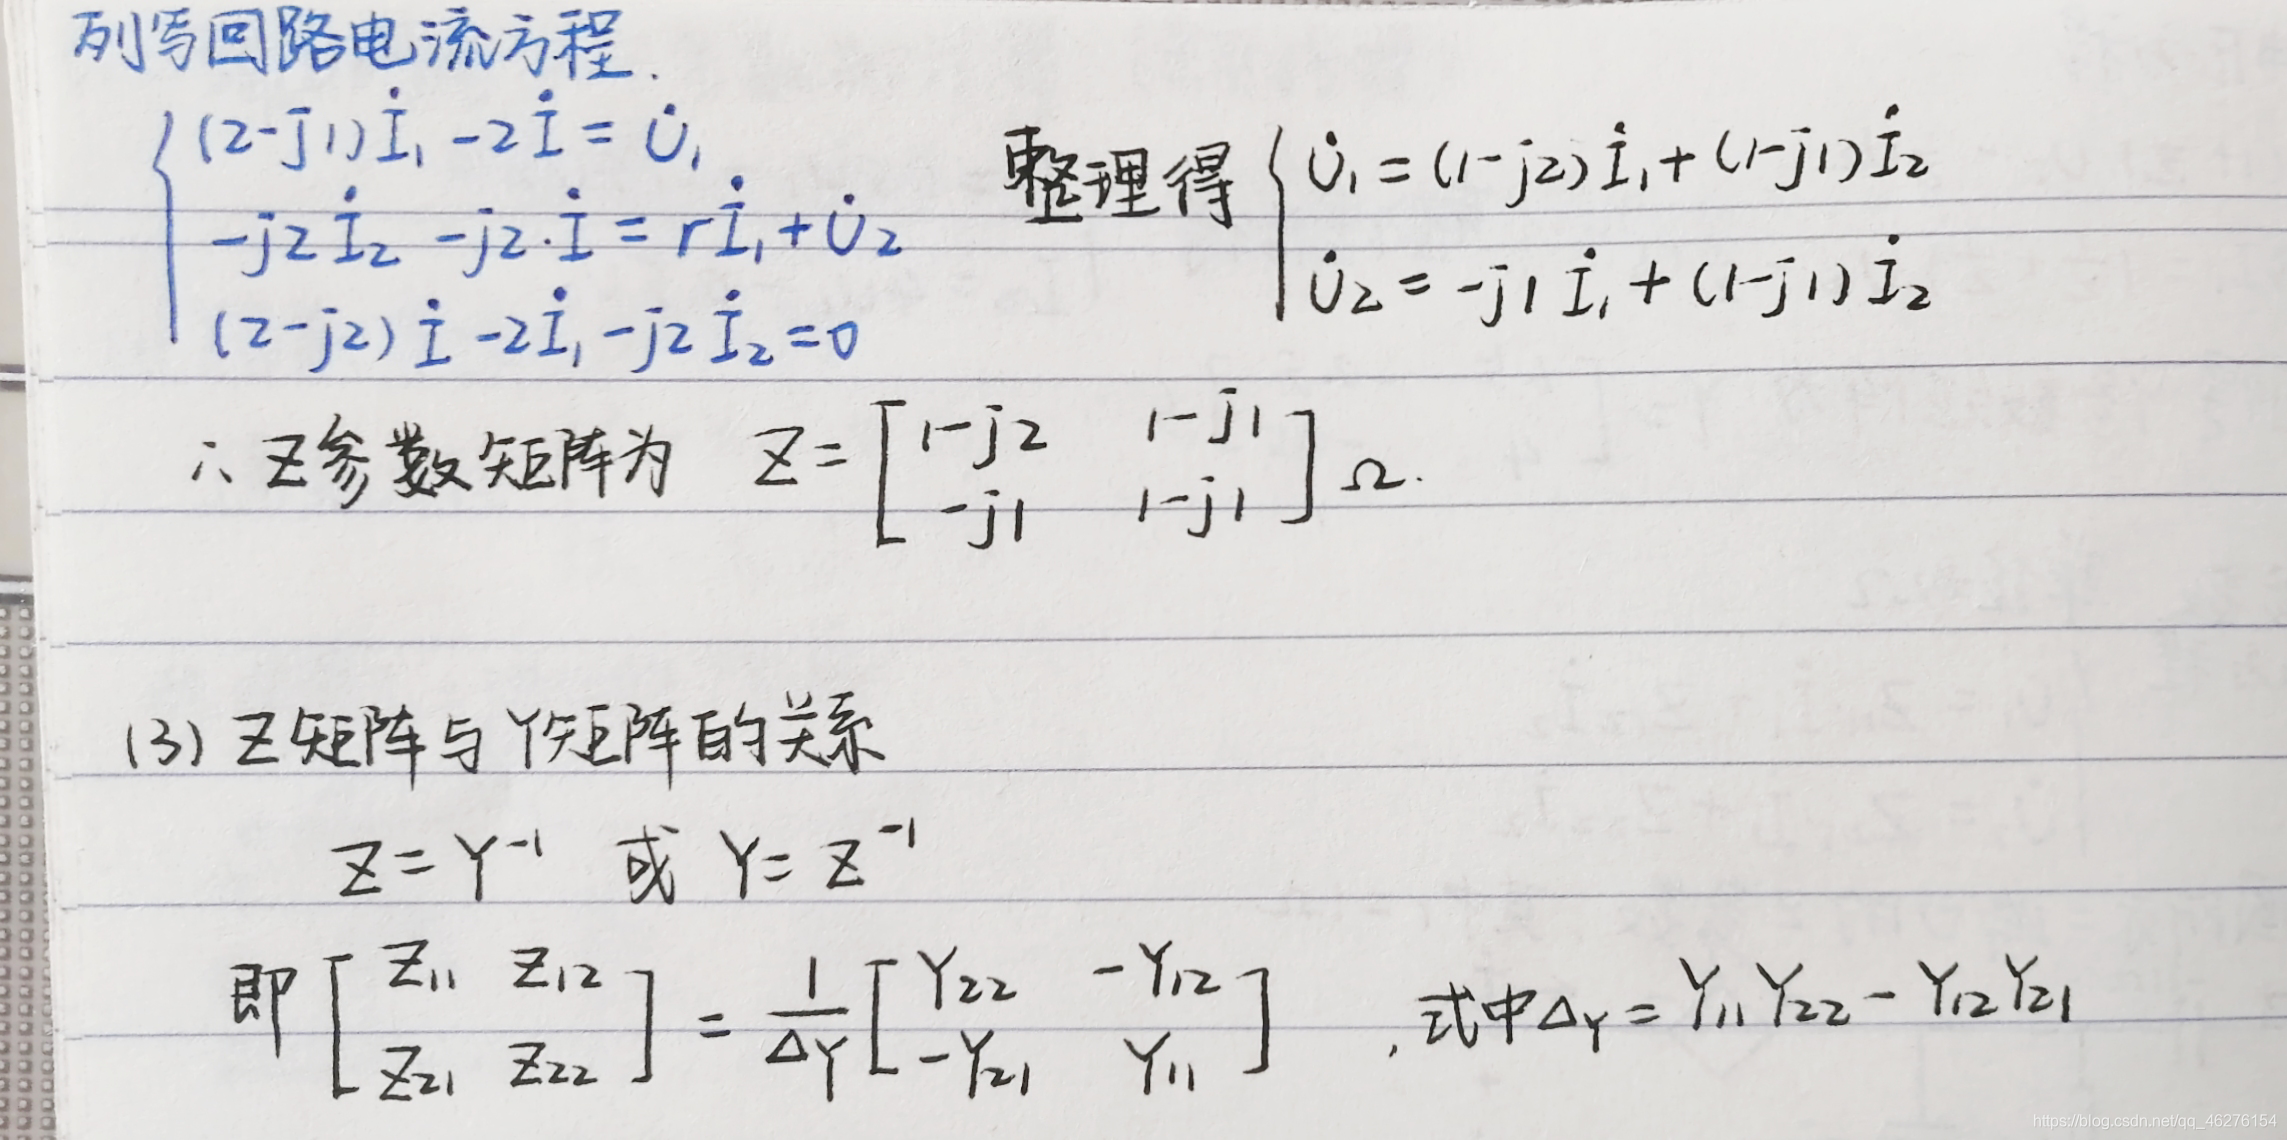 列写回路电流方程.
(2-j1)İ₁ -2İ = U̇₁
-j2İ₂ -j2·İ = rİ₁+U̇₂
(2-j2)İ -2İ₁ -j2İ₂ =0
整理得 { U̇₁ = (1-j2)İ₁+(1-j1)İ₂
U̇₂ = -j1İ₁+(1-j1)İ₂
∴ Z参数矩阵为 Z= [1-j2 1-j1
-j1 1-j1] Ω.
(3) Z矩阵与Y矩阵的关系
Z=Y⁻¹ 或 Y=Z⁻¹
即 [Z₁₁ Z₁₂
Z₂₁ Z₂₂] = 1/ΔY [Y₂₂ -Y₁₂
-Y₂₁ Y₁₁] , 式中ΔY = Y₁₁Y₂₂ - Y₁₂Y₂₁
https://blog.csdn.net/qq_46276154